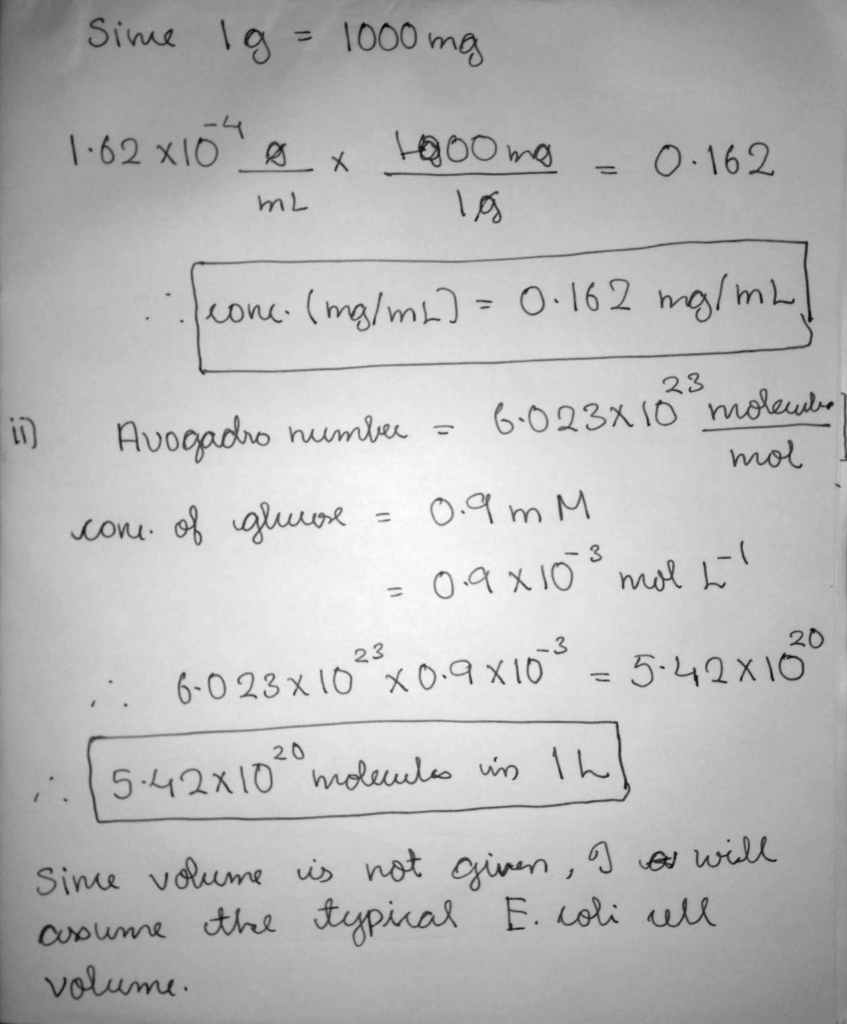 Since 1g = 1000 mg
1.62 x10⁻⁴ g/mL x 1000 mg/1g = 0.162
∴ conc. (mg/mL) = 0.162 mg/mL
ii) Avogadro number = 6.023x10²³ molecules/mol
conc. of glucose = 0.9 m M
= 0.9 x10⁻³ mol L⁻¹
∴ 6.023 x 10²³ x 0.9 x10⁻³ = 5.42x10²⁰
∴ 5.42x10²⁰ molecules in 1L
Since volume is not given, I will
assume the typical E. coli cell
volume.